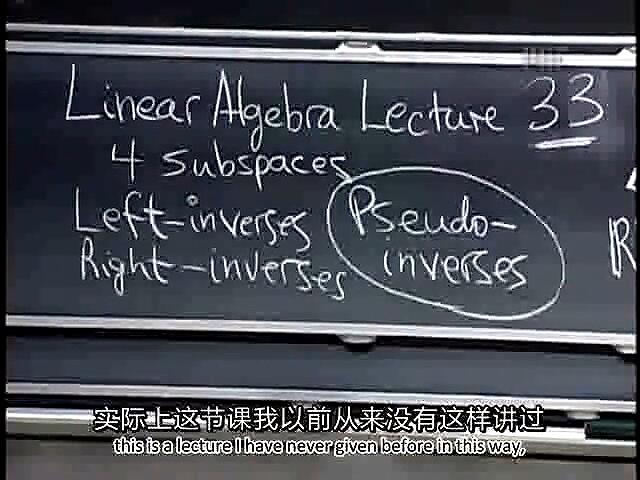 Linear Algebra Lecture 33
4 subspaces
Left-inverses
Right-inverses
Pseudo-
inverses
R
实际上这节课我以前从来没有这样讲过
this is a lecture I have never given before in this way,